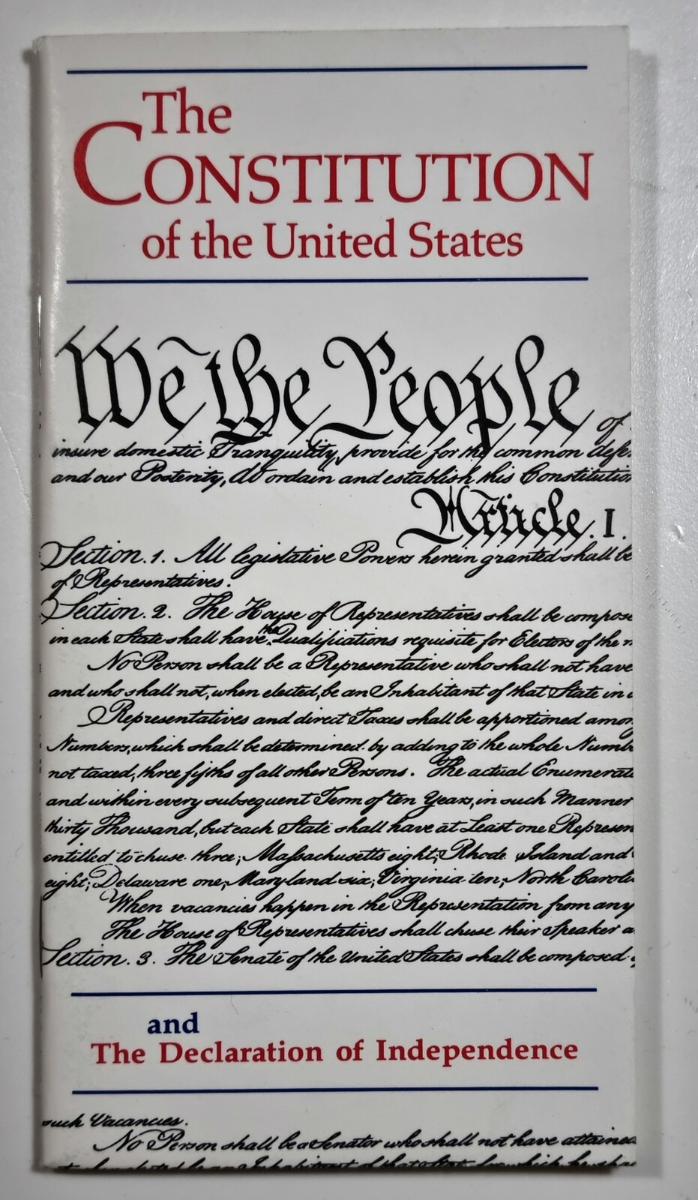 The
CONSTITUTION
of the United States
We the People of
insure domestic Tranquility, provide for the common defe
and our Posterity, do ordain and establish this Constitution
Article. I.
Section. 1. All legislative Powers herein granted shall be
of Representatives.
Section. 2. The House of Representatives shall be compose
in each State shall have the Qualifications requisite for Electors of the n
No Person shall be a Representative who shall not have
and who shall not, when elected, be an Inhabitant of that State in
Representatives and direct Taxes shall be apportioned among
Numbers, which shall be determined by adding to the whole Numb
not taxed, three fifths of all other Persons. The actual Enumerati
and within every subsequent Term of ten Years, in such Manner
thirty Thousand, but each State shall have at Least one Represen
entitled to chuse three, Massachusetts eight, Rhode Island and
eight, Delaware one, Maryland six, Virginia ten, North Caroli
When vacancies happen in the Representation from any
The House of Representatives shall chuse their Speaker a
Section. 3. The Senate of the United States shall be composed
and
The Declaration of Independence
such Vacancies.
No Person shall be a Senator who shall not have attained